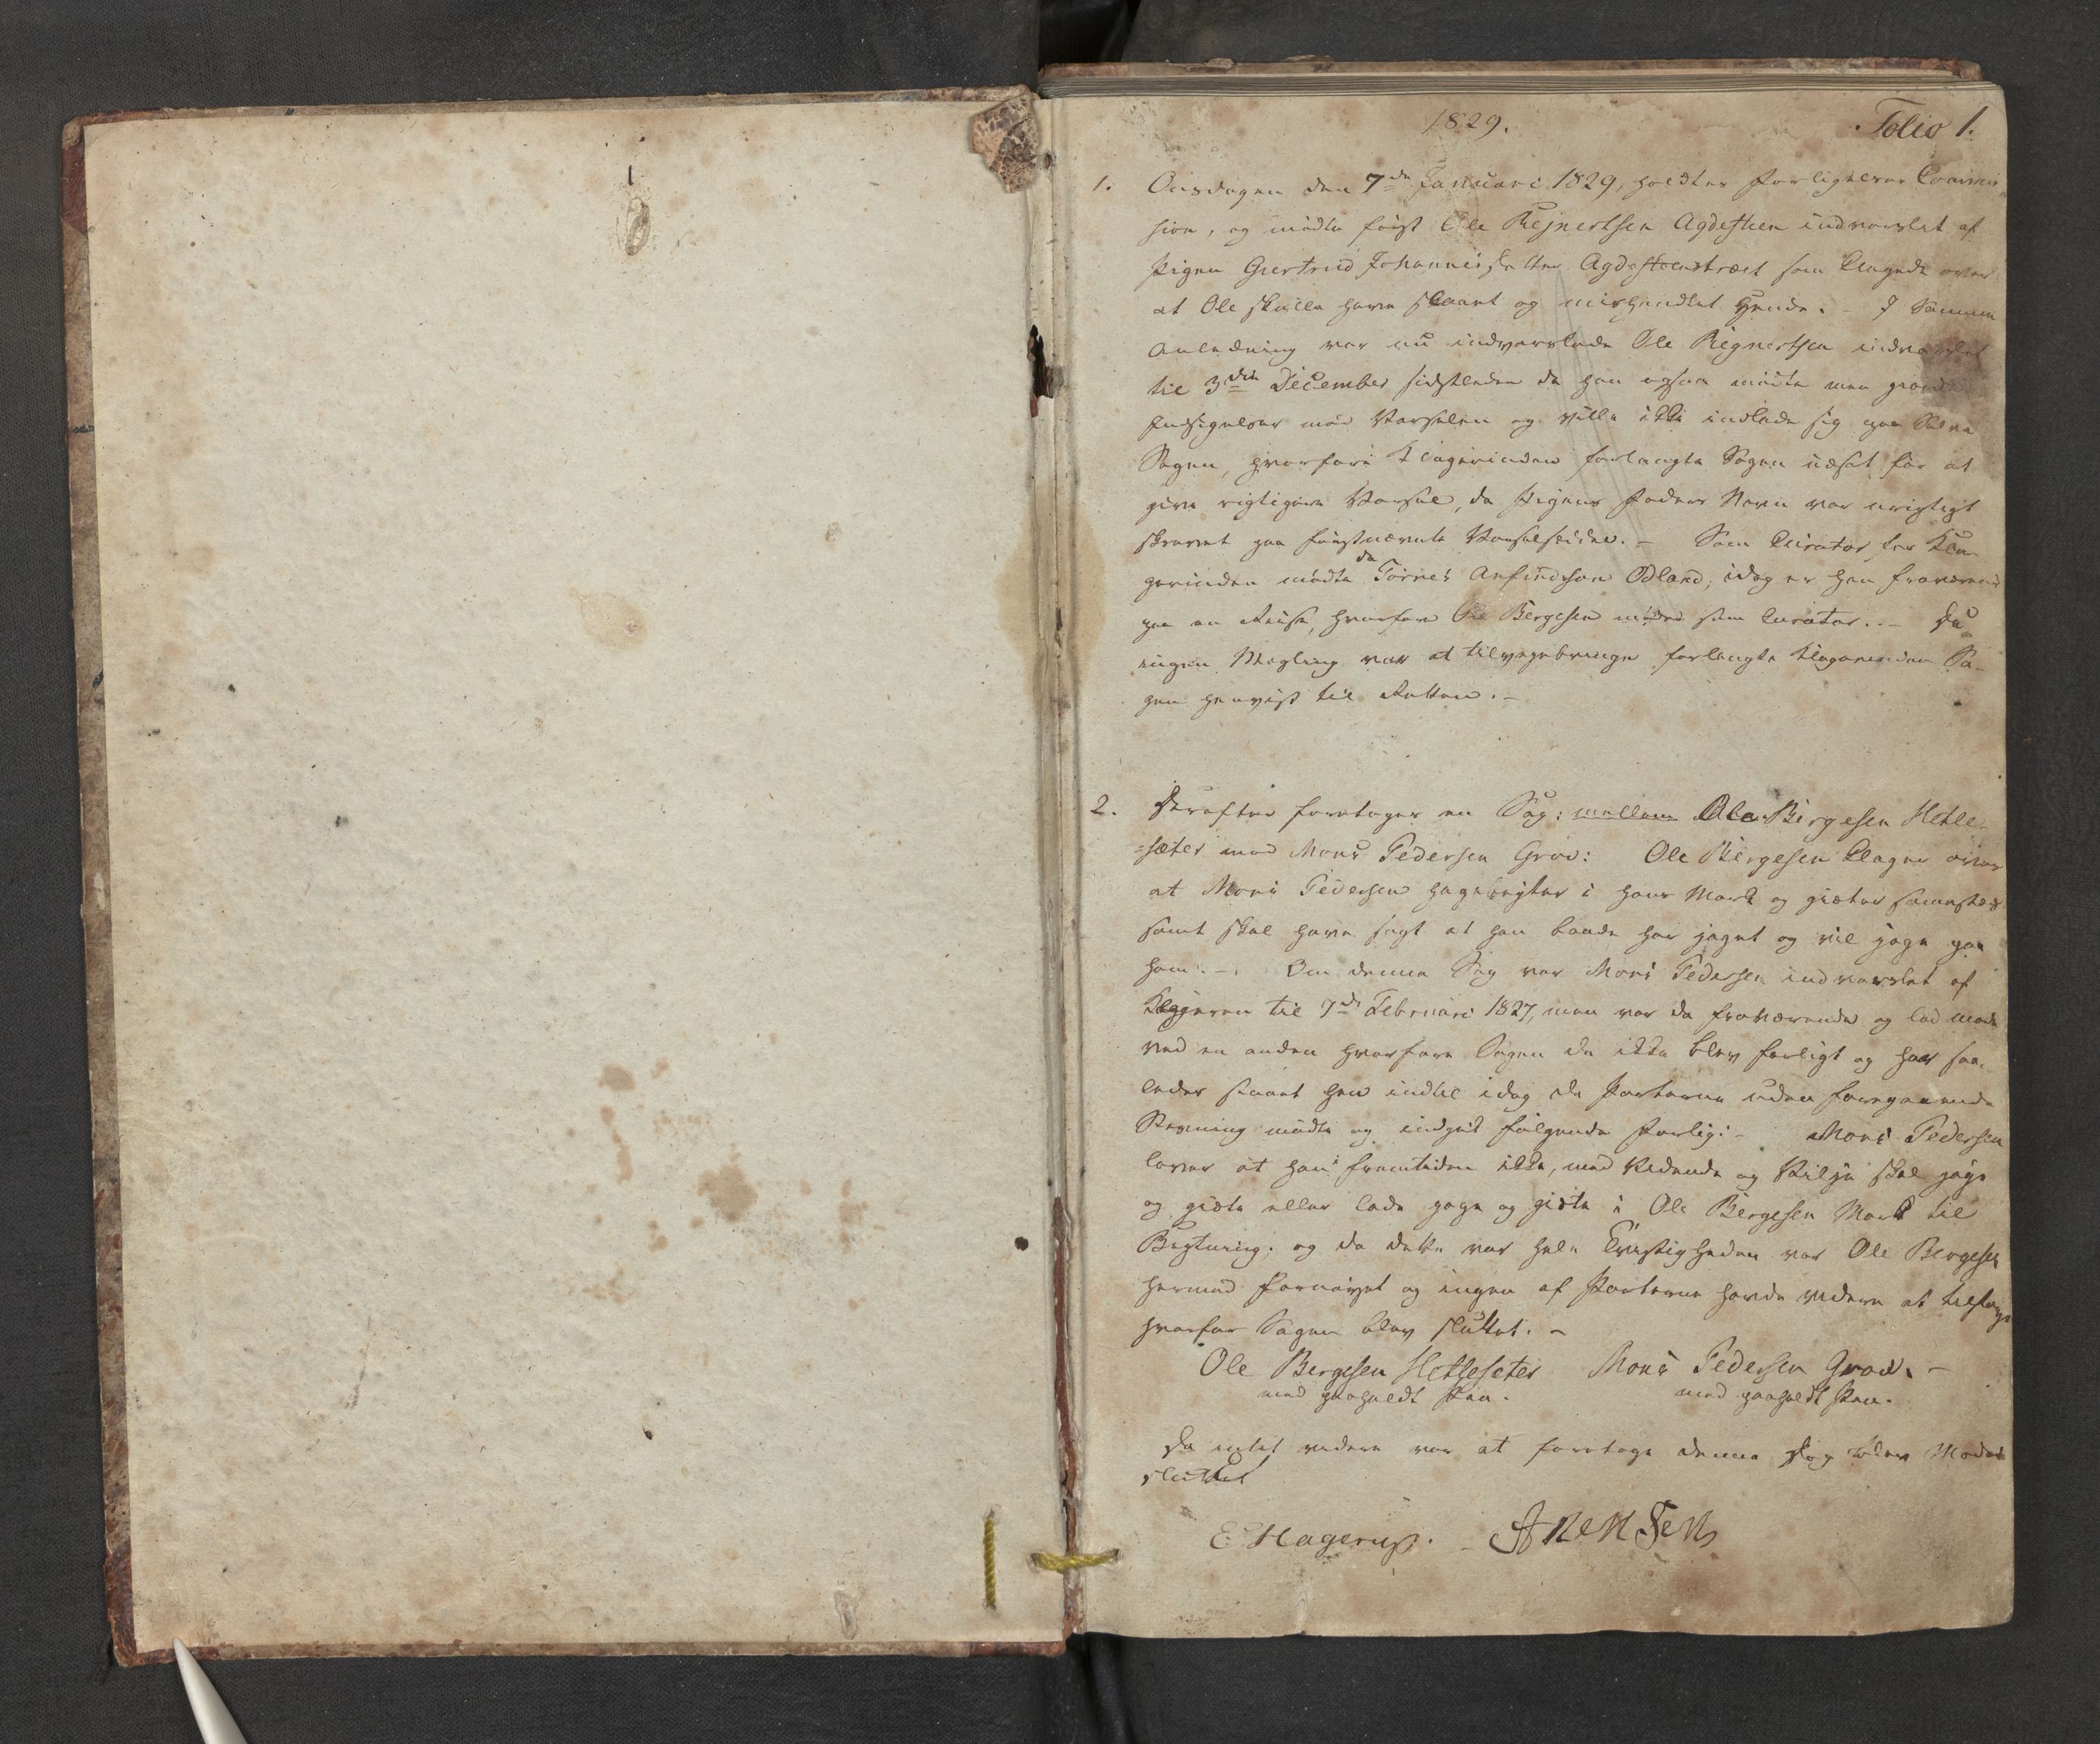 1829.
Folio 1.
1. Onsdagen den 7de Januari 1829, holdtes Forligelses Commis
sion, og mødte først Ole Rejnertsen Agdesteen indvarslet af
Pigen Giertrud Johannisdatter Agdesteenstræet som klagede over
at Ole skulle have slaaet og mishandlet Hende. - I samme
Anledning var nu indvarslede Ole Rejnertsen indvarslet
til 3die December sidstleden da han ogsaa mødte men gjorde
Indsigelser mod Varselen og ville ikke indlade sig paa Selve
Sagen, hvorfore Klagerinden forlangte Sagen udsat for at
give rigtigere Varsel, da Pigens Faders Navn var urigtigt
skrevet paa førstnævnte Varselseddel. - Som Curator for Kla-
gerinden mødte da Tørres Anfindsson Ødland, idag er han fraværende
paa en Reise, hvorfore Ole Bergesen møder som Curator. - Da
ingen Mægling var at tilvejebringe forlangte Klagerinden Sa-
gen henvist til Retten. -
2. Derefter foretages en Sag: mellem Ole Børgesen Hetle-
=sæter mod Mons Pedersen Grov: Ole Børgesen klager over
at Mons Pedersen in hans Mark og giæter sammesteds
samt skal have sagt at han baade har jaget og vil jage paa
ham. - Om denne Sag var Mons Pedersen indvarslet af
Klageren til 7de Februari 1827, men var da fraværende og lod møde
ved en anden hvorfore Sagen da ikke blev forligt og har saa-
ledes staaet hen indtil idag da Parterne uden foregaaende
Stevning mødte og indgik følgende Forlig: - Mons Pedersen
lover at han i Fremtiden ikke, med Vidende og Vilje skal jage
og giæte eller lade jage og giæte i Ole Bergesen Mark til
og da dette var hele Tvistigheden var Ole Bergesen
hermed fornøyet og ingen af Parterne havde videre at tilføye
hvorfor Sagen blev sluttet. -
Ole Bergesen Hetlesæter Mons Pedersen Grov. -
med paaholdt Pen. med paaholdt Pen.
Da intet videre var at foretage denne Dag blev Mødet
sluttet
E Hagerup. - ARENSEN